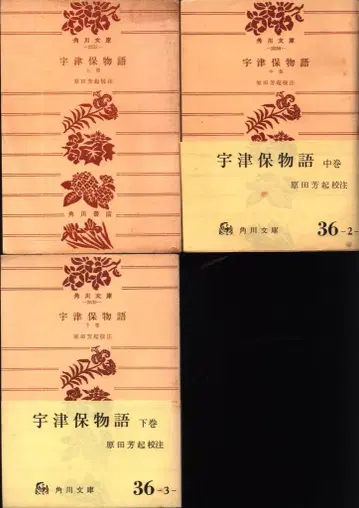 角川文庫
宇津保物語
上巻
原田芳起校注
角川書店
角川文庫
宇津保物語
中巻
原田芳起校注
宇津保物語 中巻
原田芳起校注
角川文庫
36-2-
角川文庫
宇津保物語
下巻
原田芳起校注
宇津保物語 下巻
原田芳起校注
角川文庫
36-3-